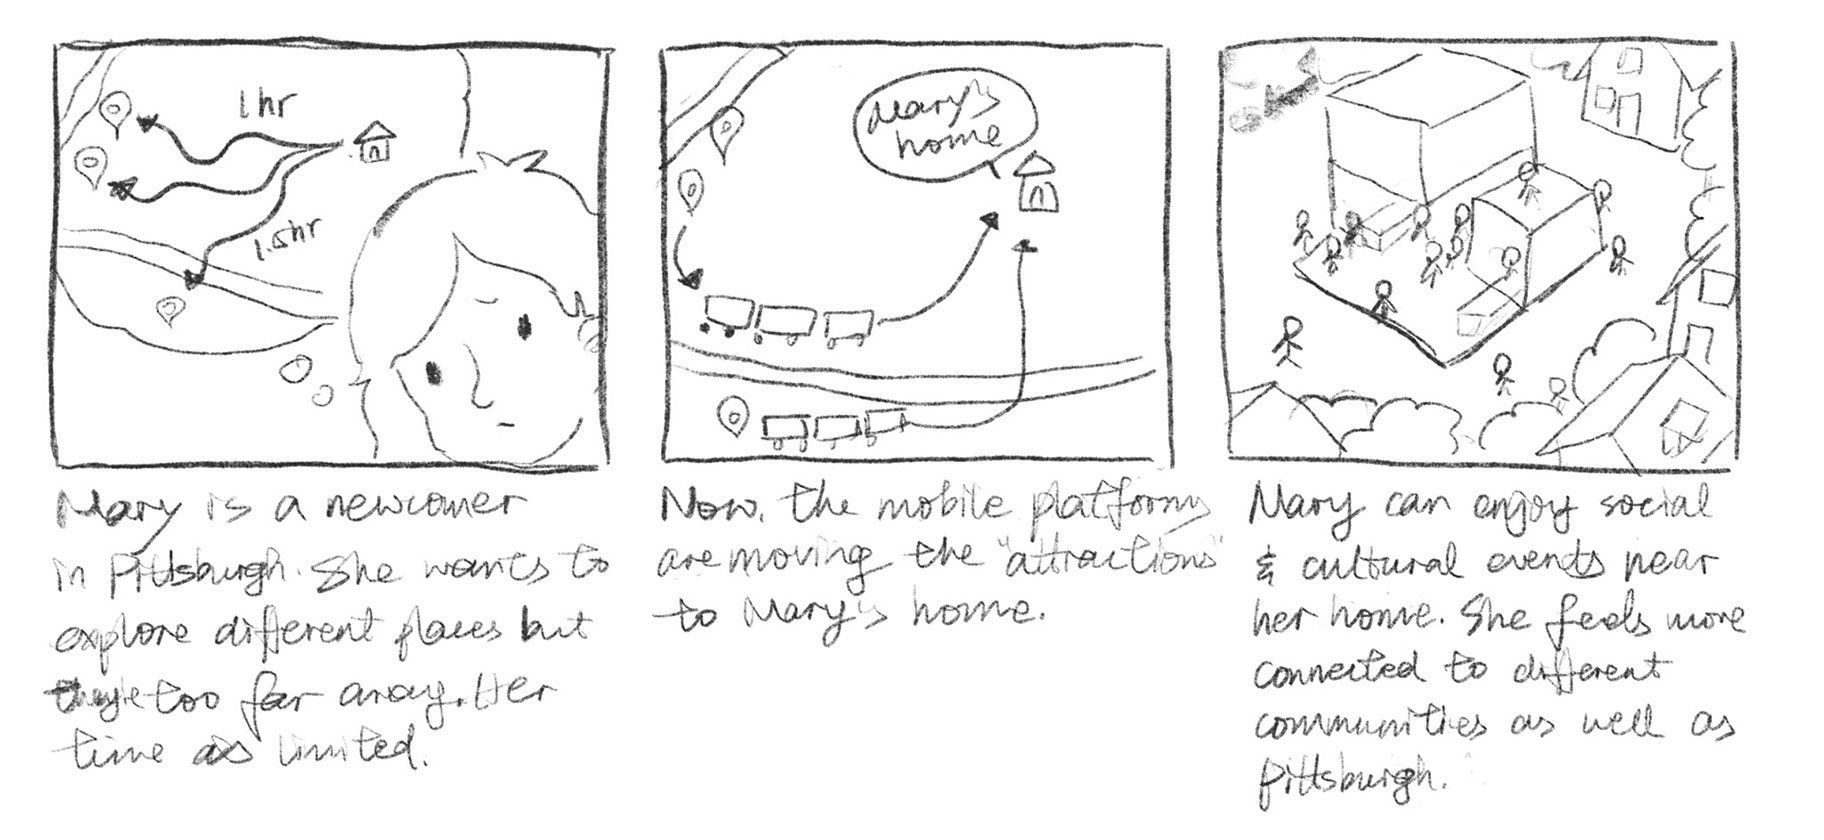 1 hr
1.5 hr
Mary is a newcomer
in Pittsburgh. She wants to
explore different places but
they're too far away. Her
time is limited.
Mary's
home
Now, the mobile platforms
are moving the "attractions"
to Mary's home.
Mary can enjoy social
& cultural events near
her home. She feels more
connected to different
communities as well as
Pittsburgh.